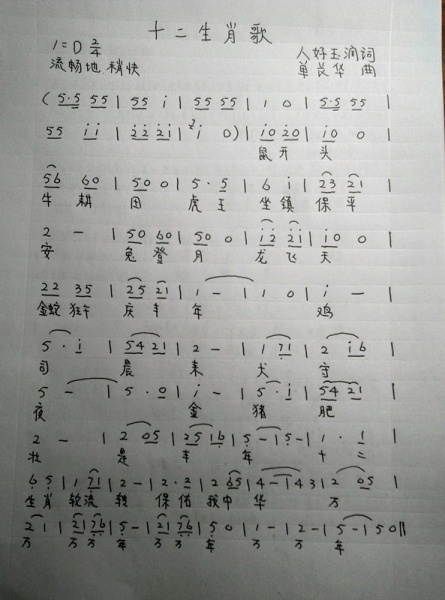 十二生肖歌
1=D 2/4 人好玉润词
流畅地 稍快 单茛华 曲
( 5·5 55 | 55 i | 55 55 | 1 0 | 5·5 55 |
55 ii | 22 2i | i 0 ) | i0 20 | i0 0 |
鼠开 头
56 60 | 50 0 | 5· 5 | 6 i | 23 21 |
牛 耕 田 虎王 坐镇 保平
2 — | 50 60 | 50 0 | i2 2i | i0 0 |
安 兔登 月 龙飞 天
22 35 | 25 21 | 1 — | 1 | 1 0 | i — |
金蛇 狂午 庆丰 年 鸡
5 · i | 54 21 | 2 — | 1 71 | 2 i6 |
司 晨 来 犬 守
5 — | 5 · 0 | i — | 5 · i | 54 21 |
夜 金 猪 肥
2 — | 2 05 | 25 16 | 5 — | 5 — | 1 · 1 |
壮 是 丰 年 十 二
6 5 | 1 71 | 2 — | 2 · 2 | 2 65 | 4 — | 4 43 | 2 05 |
生肖 轮流 转 保佑 我中 华 万
2 1 | 21 76 | 5 — | 21 76 | 5 0 | 1 — | 2 — | 5 — | 5 0 ||
万 万 万 年 万 万 年 万 万 年